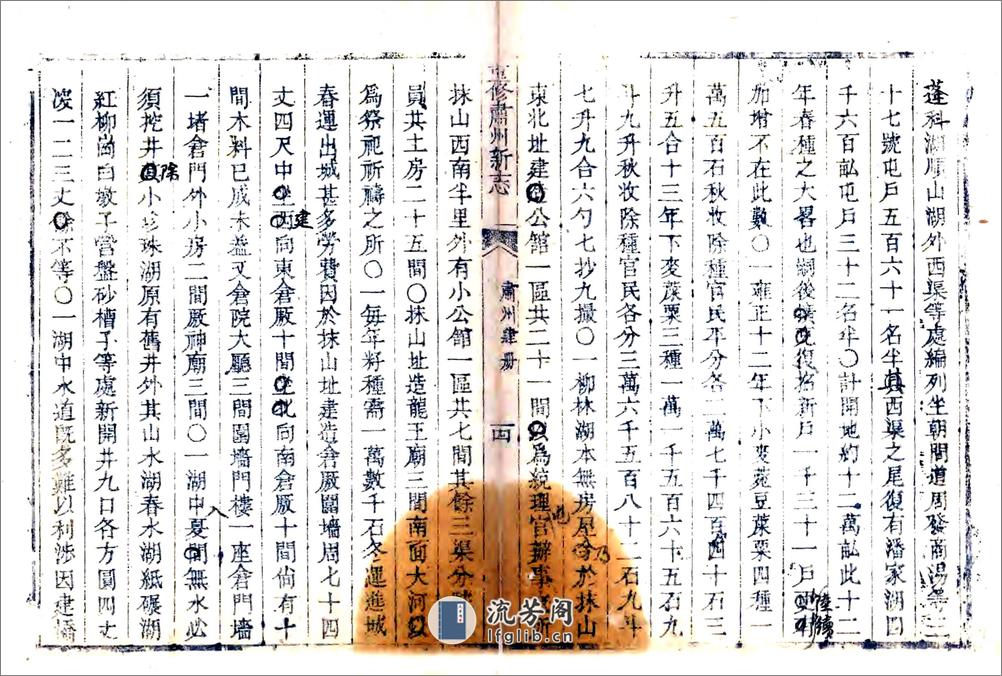 蓬科湖順山湖外西渠等處編列坐朝問道周發商湯等二
十七號屯戶五百六十一名半其西渠之尾復有潘家湖四
千六百畝屯戶三十二名半〇計開地約十二萬畝此十二
年春種之大畧也嗣後復招新戶一千三十一戶陸續
加增不在此數〇一雍正十二年下小麥菀豆穈粟四種一
萬五百石秋收除種官民平分各二萬七千四百四十三
升五合十三年下麥穈粟三種一萬一千五百六十五石九
斗九升秋收除種官民各分三萬六千五百八十二石九斗
七升九合六勺七抄九撮〇一柳林湖本無房屋乃於抹山
東北址建公館一區共二十一間為統理官辦事
抹山西南半里外有小公館一區共七間其餘三渠分
員共土房二十五間〇抹山址造龍王廟三間南面大河
為祭祀所禱之所〇一每年籽種需一萬數千石冬運進城
春運出城甚多勞費因於抹山址建造倉廒圍墻周七十四
丈四尺中建西向東倉廒十間北向南倉廒十間尚有十
間木料已成未蓋又倉院大廳三間圍墻門樓一座倉門墻
一堵倉門外小房二間廒神廟三間〇一湖中入夏無水必
須挖井除小珍珠湖原有舊井外其山水湖春水湖紙碾湖
紅柳崗白墩子營盤砂槽子等處新開井九口各方圓四丈
深一二三丈不等〇一湖中水道既多難以利涉因建橋
重修肅州新志
肅州肆冊
十四
流芳阁
lfglib.cn